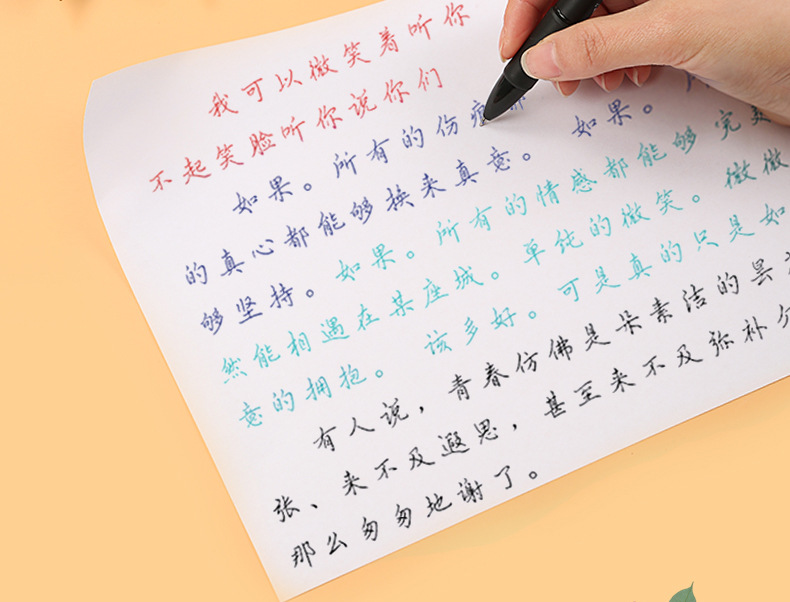 我可以微笑着听你
不起笑脸听你说你们
如果。所有的伤
的真心都能够换来真意。 如果。
够坚持。如果。所有的情感都能够完美
然能相遇在某座城。单纯的微笑。微微
意的拥抱。 该多好。可是真的只是如
有人说，青春仿佛是朵素洁的昙
张、来不及遐思，甚至来不及弥补
那么匆匆地谢了。